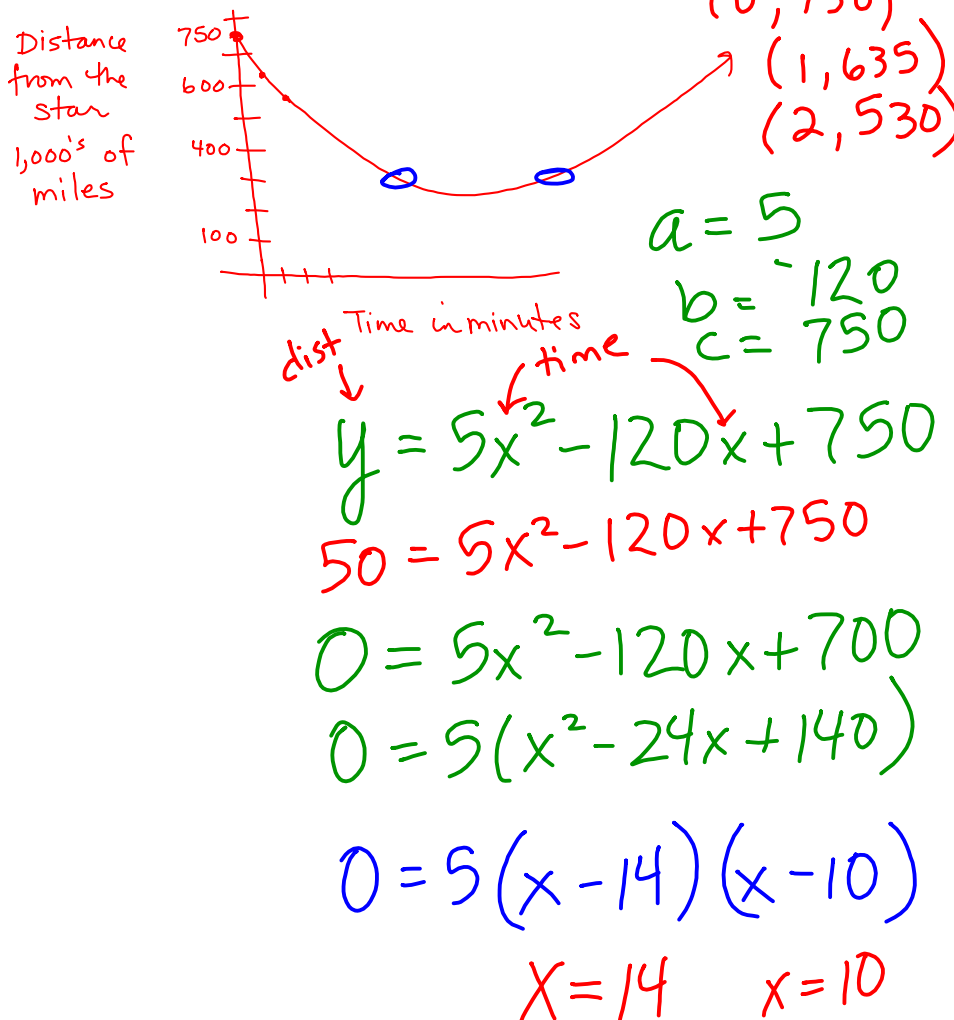 Distance
from the
star
1,000's of
miles
750
600
400
100
Time in minutes
(0, 750)
(1, 635)
(2, 530)
a = 5
b = -120
c = 750
dist
time
y = 5x² - 120x + 750
50 = 5x² - 120x + 750
0 = 5x² - 120x + 700
0 = 5(x² - 24x + 140)
0 = 5(x - 14)(x - 10)
x = 14 x = 10